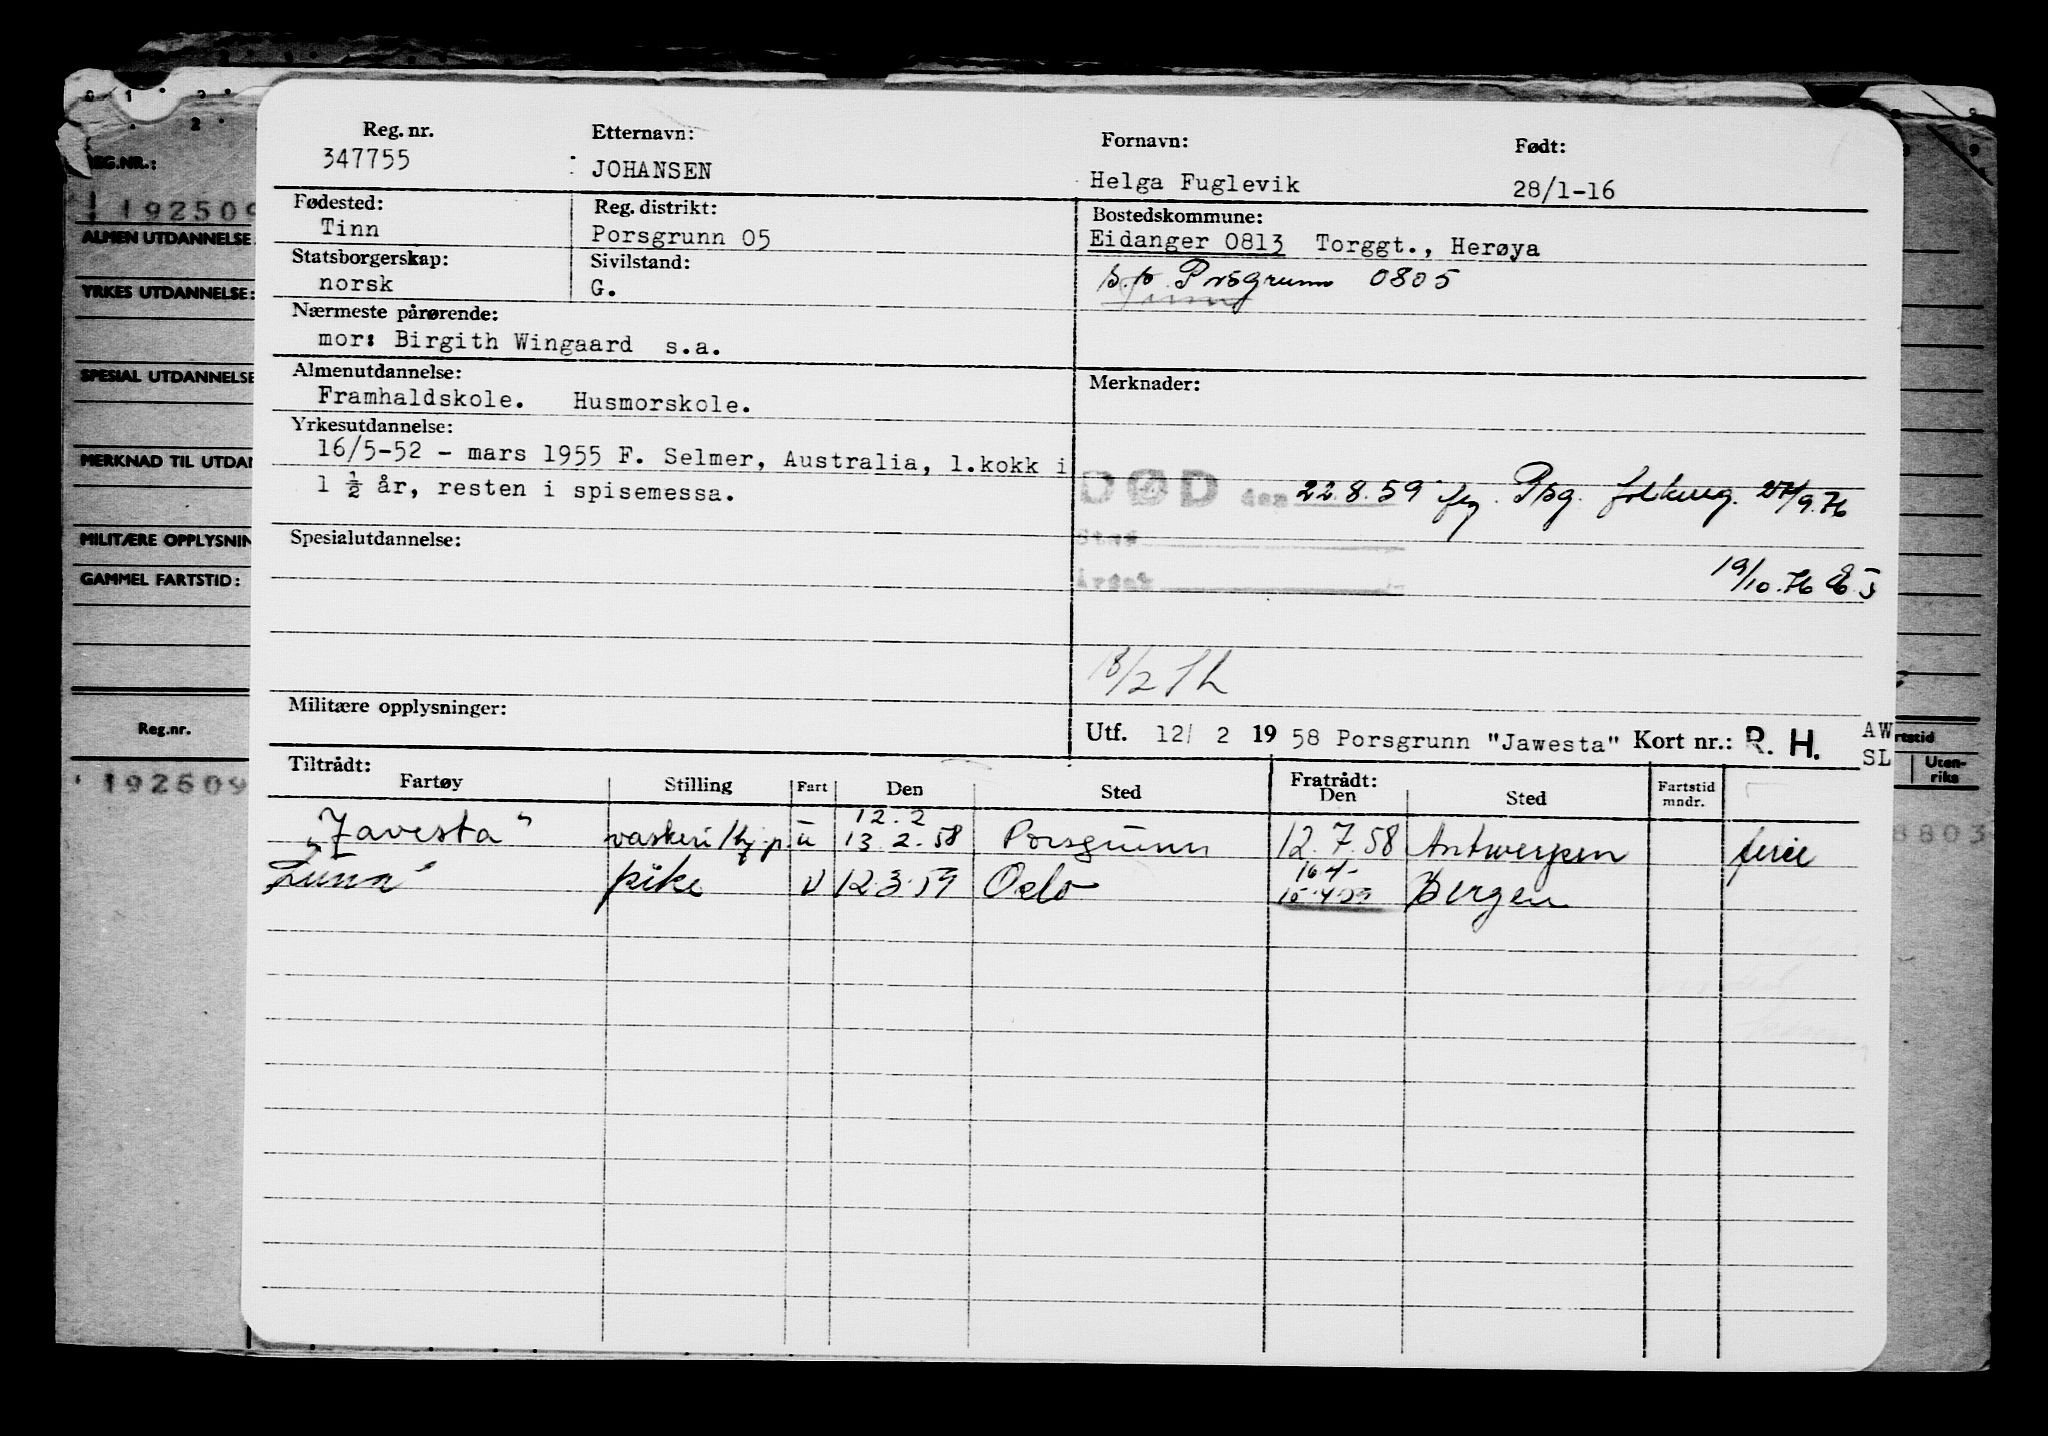 Reg. nr. Etternavn: Fornavn: Født:
347755 JOHANSEN Helga Fuglevik 28/1-16
Fødested: Reg. distrikt: Bostedskommune:
Tinn Porsgrunn 05 Eidanger 0813 Torggt., Herøya
Statsborgerskap: Sivilstand:
norsk G. Porsgrunn 0805
Nærmeste pårørende:
mor: Birgith Wingaard s.a.
Almenutdannelse: Merknader:
Framhaldskole. Husmorskole.
Yrkesutdannelse:
16/5-52 - mars 1955 F. Selmer, Australia, 1.kokk i
1 ½ år, resten i spisemessa.
DØD den 22.8.59 Psg. 9.76
Spesialutdannelse: Sted
Årsak 19/10.76
Militære opplysninger:
Utf. 12/ 2 19 58 Porsgrunn "Jawesta" Kort nr.: R. H. AW
SL
Tiltrådt: Fratrådt:
Fartøy Stilling Fart Den Sted Den Sted Fartstid mndr.
12.2
"Javesta" vaskeri u 13.2.58 Porsgrunn 12.7.58 Antwerpen ferie
16.4
"Luna" pike 12.3.59 Oslo 15.4.59 Bergen
REG.NR.:
192509
ALMEN UTDANNELSE
YRKES UTDANNELSE:
SPESIAL UTDANNELSE
MERKNAD TIL UTDAN
MILITÆRE OPPLYSNIN
GAMMEL FARTSTID:
Reg.nr.
192509
rtstid
Uten-
riks
8803